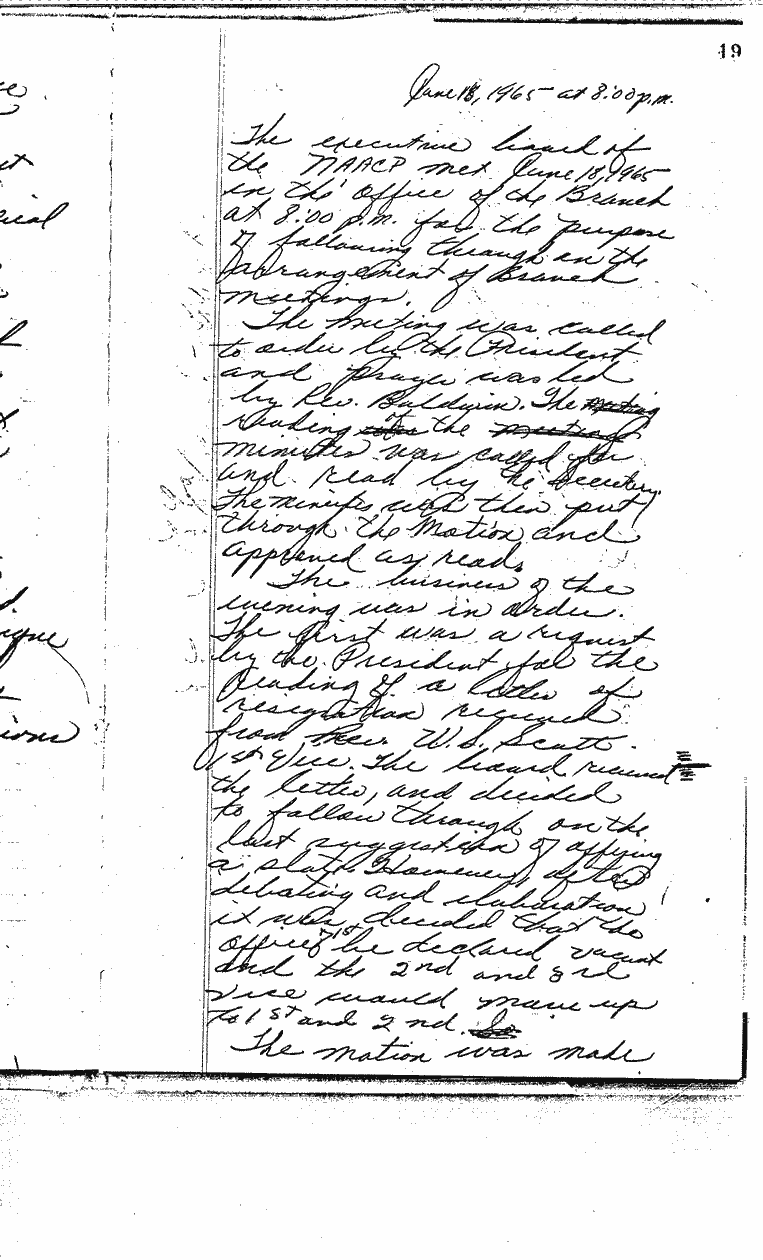 19
June 18, 1965 at 8:00 p.m.
The executive board of
the NAACP met June 18, 1965
in the Office of the Branch
at 8:00 p.m. for the purpose
of following through on the
arrangement of Branch
meetings.
The meeting was called
to order by the President
and prayer was led
by Rev. Baldwin. The meeting
reading of the meeting
minutes was called for
and read by the Secretary.
The minutes was then put
through the Motion and
approved as read.
The business of the
evening was in order.
The first was a request
by the President for the
reading of a letter of
resignation received
from Rev. W.S. Scott
1st Vice. The board received
the letter, and decided
to follow through on the
last suggestion of offering
a slate. However, after
debating and elaboration
it was decided that the
office of 1st be declared vacant
and the 2nd and 3rd
vice would move up
to 1st and 2nd. So
The motion was made
ical
ions